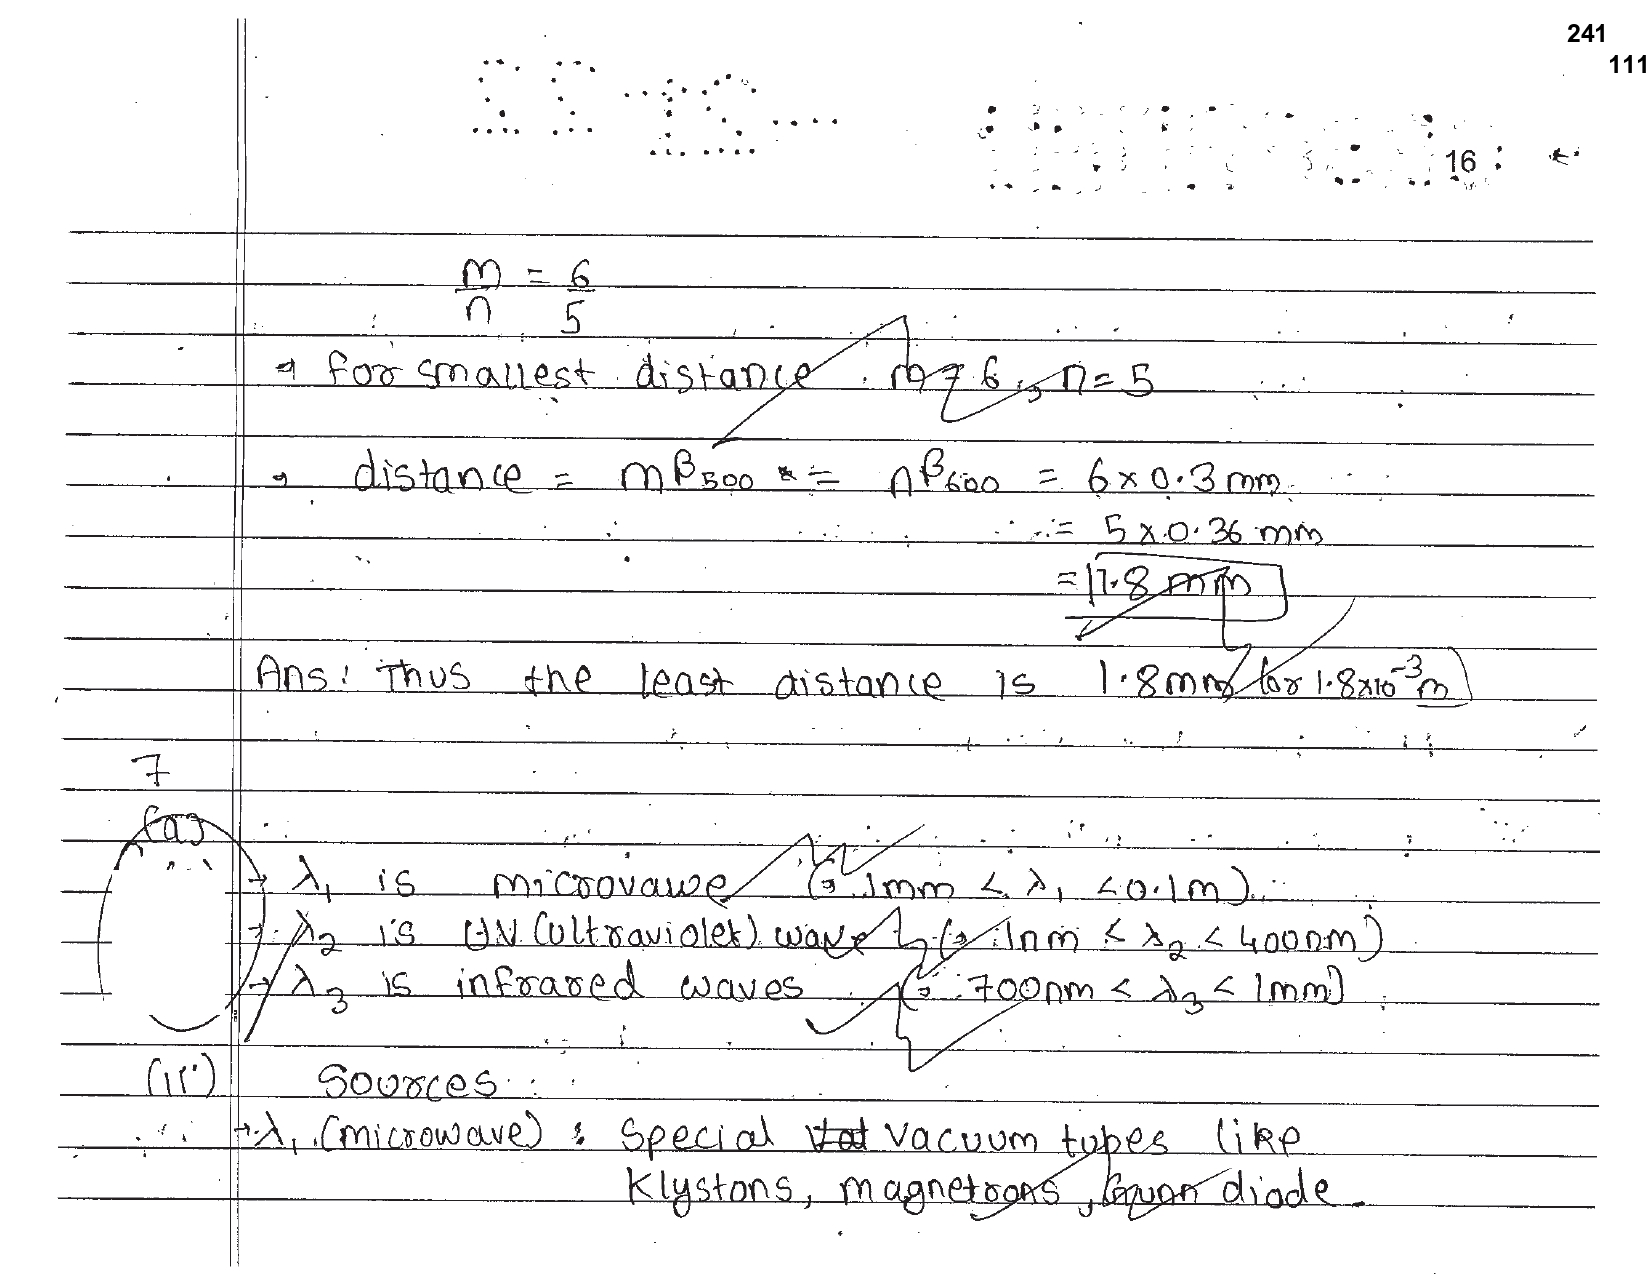 241
111
16
m/n = 6/5
→ for smallest distance m = 6, n = 5
→ distance = mβ500 = nβ600 = 6 x 0.3 mm
= 5 x 0.36 mm
= 1.8 mm
Ans: Thus the least distance is 1.8mm (or 1.8x10⁻³m)
7
(a)
→ λ1 is microvawe (∵ 1mm < λ1 < 0.1m)
→ λ2 is U.V. (ultraviolet) wave (∵ 1nm < λ2 < 400nm)
→ λ3 is infrared waves (∵ 700nm < λ3 < 1mm)
(ii) Sources
→ λ1 (microwave) : Special vacuum tubes like
Klystons, magnetrons, Gunn diode.